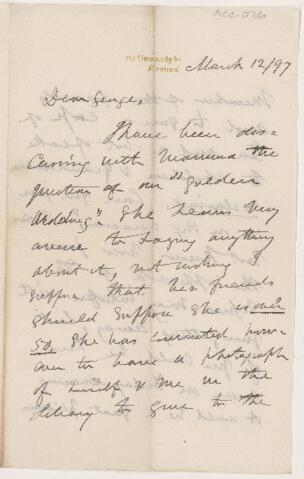 ACC-526
293 University St
Montreal
March 12/97
Dear George,
I have been dis-
cussing with Mamma the
question of our "golden
Wedding". She seems very
averse to saying anything
about it, not wishing I
suppose that her friends
should suppose she is over
50. She has consented how-
ever to have a photograph
of herself & me in the
Library to give to the